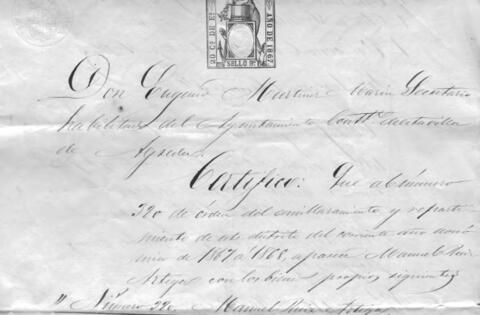 20 Cs DE Eo
AÑO DE 1867
SELLO 9º
Don Eugenio Martinez Marin Secretario
habilitado del Ayuntamiento Constl. de esta villa
de Agreda.
Certifico: Que al número
320 de órden del amillaramiento y reparti
miento de este distrito del corriente año econó
mico de 1867 á 1868, aparece Manuel Ruiz
Artega con los bienes propios siguientes
" Número 320. Manuel Ruiz